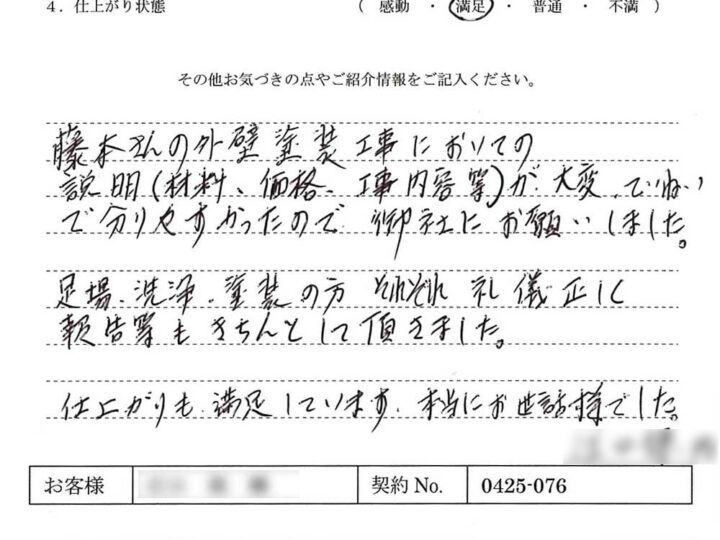 4．仕上がり状態　（ 感動 ・ 満足 ・ 普通 ・ 不満 ）
その他お気づきの点やご紹介情報をご記入ください。
藤本さんの外壁塗装工事においての
説明(材料、価格、工事内容等)が大変、ていねい
で分りやすかったので御社にお願いしました。
足場、洗浄、塗装の方 それぞれ 礼儀正しく
報告等もきちんとして頂きました。
仕上がりも満足しています、本当にお世話様でした。
お客様　契約 No.　0425-076